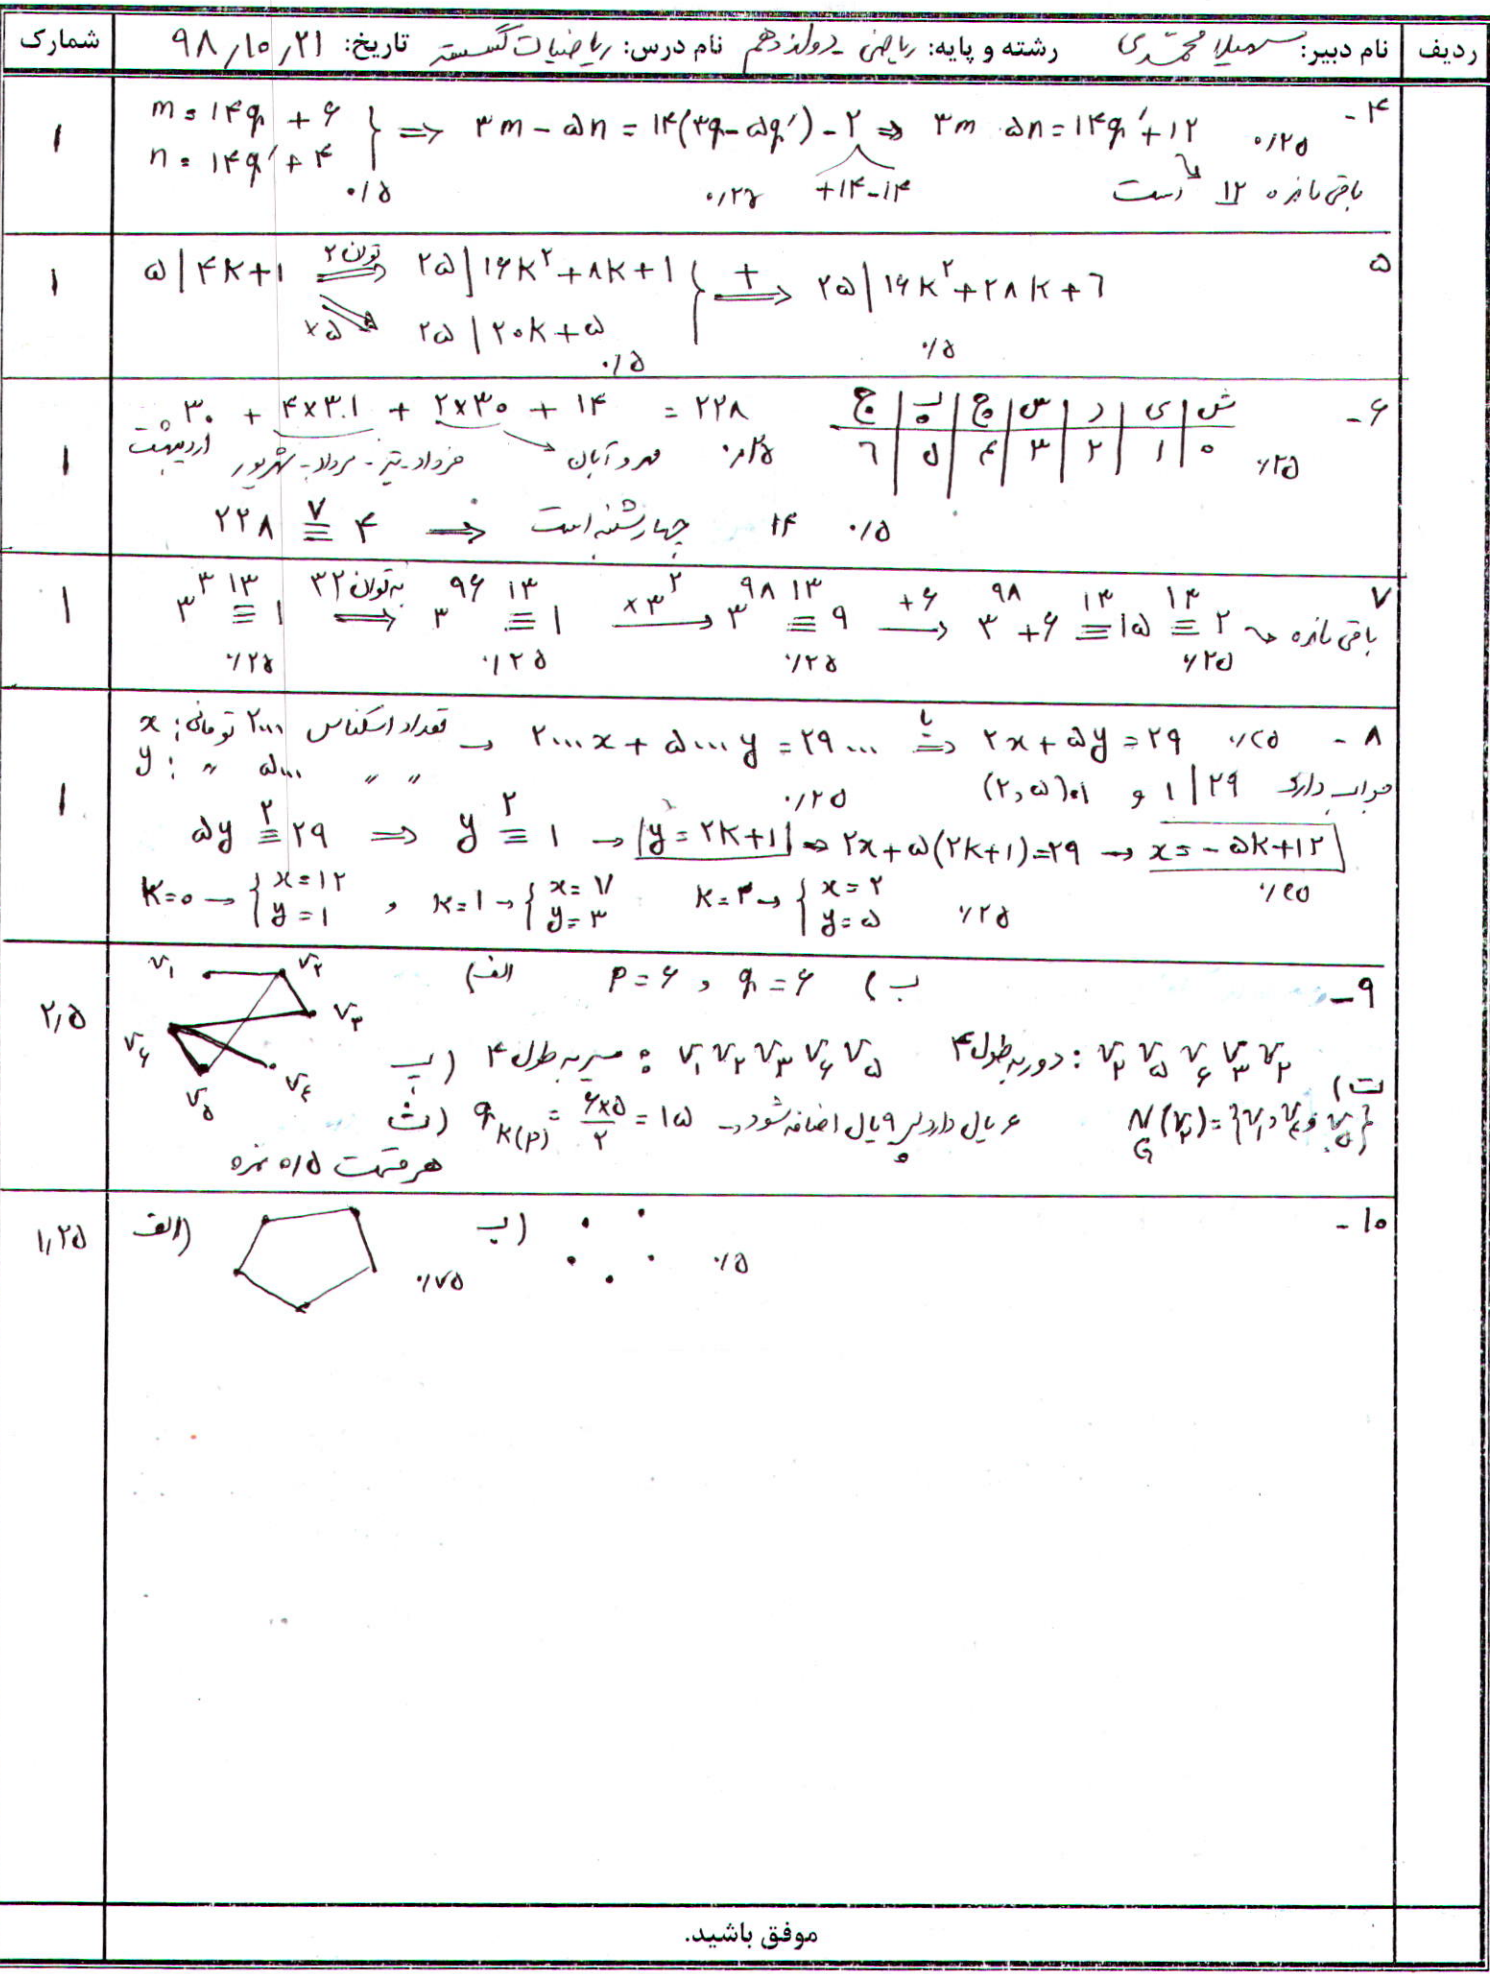 ردیف نام دبیر: سهیلا محمدی رشته و پایه: ریاضی - دوازدهم نام درس: ریاضیات گسسته تاریخ: ۹۸٫۱۰٫۲۱ شمارک
۴- m = ۱۴q + ۶
n = ۱۴q' + ۴ } => ۳m - ۵n = ۱۴(۳q - ۵q') - ۲ => ۳m ۵n = ۱۴q' + ۱۲ ۰/۲۵ ۱
۰/۵ ۰/۲۵ +۱۴-۱۴ باقی مانده ۱۲ است
۵ ۵ | ۴k+۱ توان ۲ => ۲۵ | ۱۶k² + ۸k + ۱ } + => ۲۵ | ۱۶k² + ۲۸k + ۶ ۱
×۵ ۲۵ | ۲۰k + ۵
۰/۵ ۰/۵
۶- ۳۰ + ۴×۳۱ + ۲×۳۰ + ۱۴ = ۲۲۸ ش ی د س چ پ ج
اردیبهشت خرداد - تیر - مرداد - شهریور مهر و آبان ۰/۲۵ ۰ ۱ ۲ ۳ ۴ ۵ ۶ ۰/۲۵ ۱
۲۲۸ ≡ ۴ (۷) => چهارشنبه است ۱۴ ۰/۵
۷ ۳³ ≡ ۱ (۱۳) به توان ۳۲ => ۳^۹۶ ≡ ۱ (۱۳) ×۳² → ۳^۹۸ ≡ ۹ (۱۳) +۶ → ۳^۹۸ + ۶ ≡ ۱۵ ≡ ۲ (۱۳) باقی مانده ۱
۰/۲۵ ۰/۲۵ ۰/۲۵ ۰/۲۵
۸- x: تعداد اسکناس ۲۰۰۰ تومانی → ۲۰۰۰x + ۵۰۰۰y = ۲۹۰۰۰ => ۲x + ۵y = ۲۹ ۰/۲۵
y: " ۵۰۰۰ " " ۰/۲۵ (۲,۵)=۱ و ۱|۲۹ جواب دارد ۱
۵y ≡ ۲۹ (۲) => y ≡ ۱ (۲) → y = ۲k+۱ => ۲x + ۵(۲k+۱) = ۲۹ → x = -۵k+۱۲
۰/۲۵
k=۰ → { x=۱۲ y=۱ , k=۱ → { x=۷ y=۳ k=۲ → { x=۲ y=۵ ۰/۲۵
۹- الف) v۱ v۲ v۳ v۶ v۵ v۴ ب) p=۶ , q=۶ ۲٫۵
پ) مسیر به طول ۴ : v۱ v۲ v۳ v۶ v۵ دور به طول ۴ : v۲ v۵ v۶ v۳ v۲
ت) N_G(v۲) = {v۱, v۳, v۵}
ث) q_K(p) = ۶×۵/۲ = ۱۵ → ۶ یال دارد پس ۹ یال اضافه شود
هر قسمت ۰/۵ نمره
۱۰- الف) ۰/۷۵ ب) ۰/۵ ۱٫۲۵
موفق باشید.